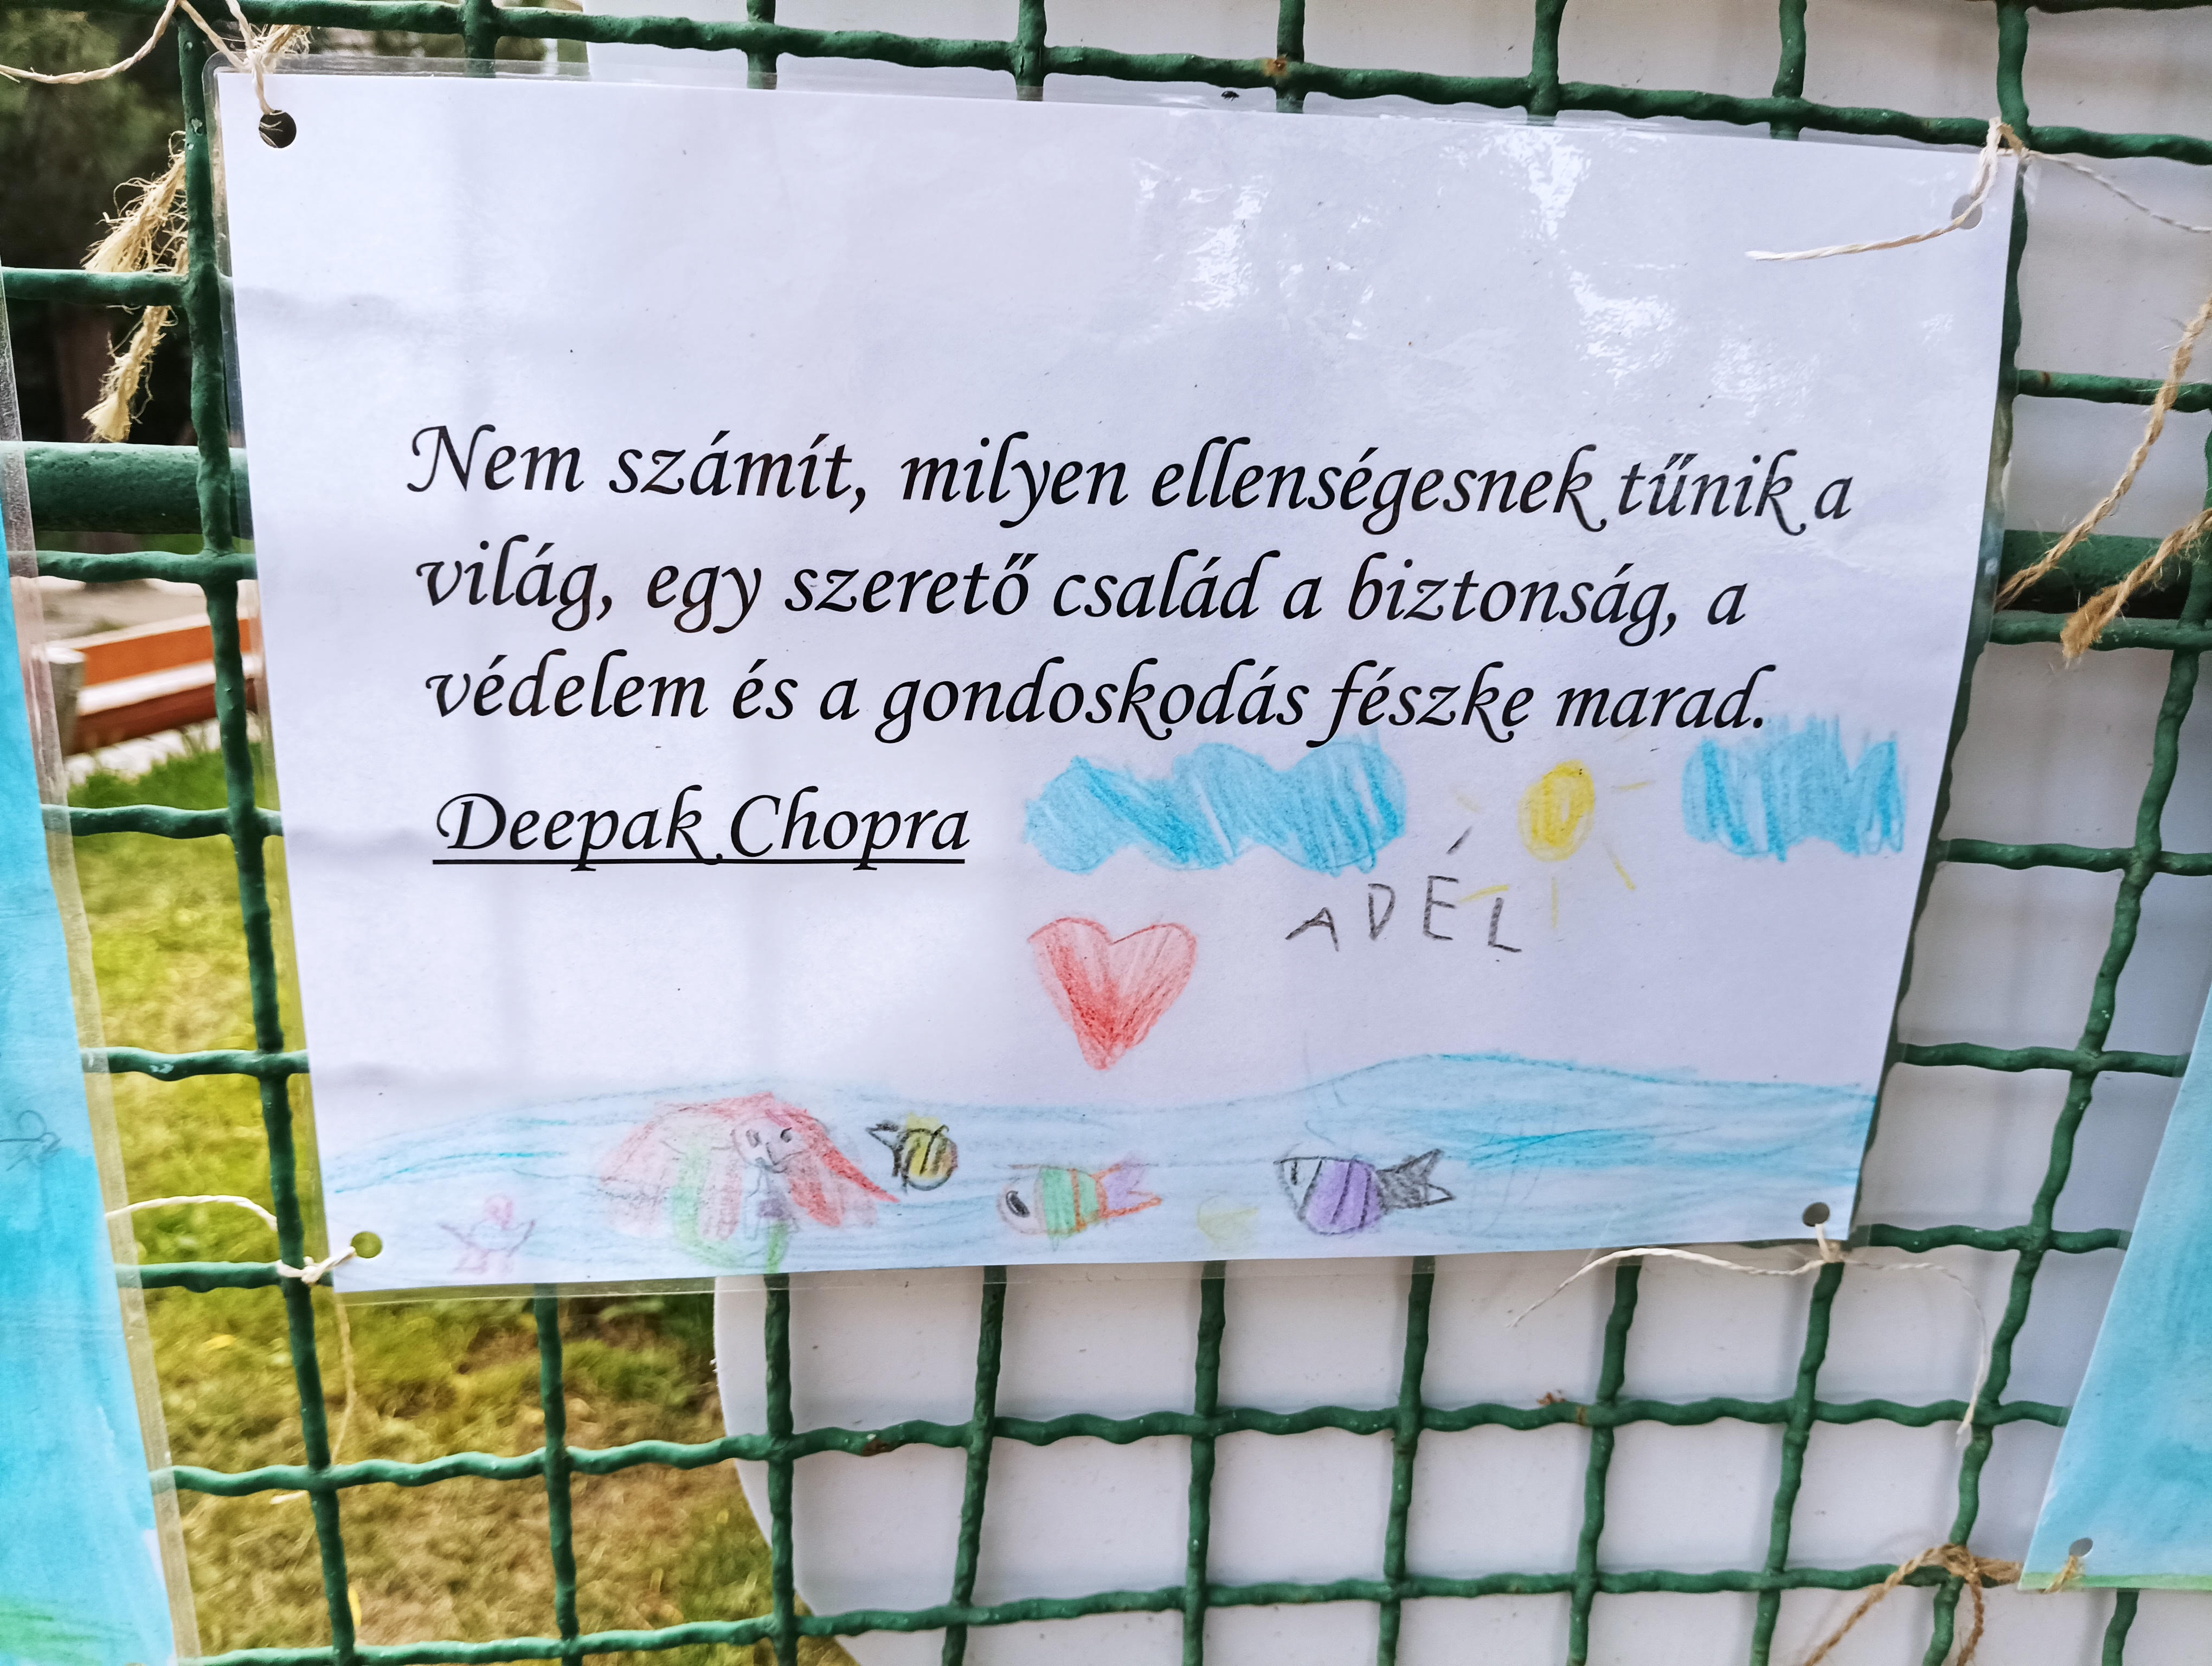 Nem számít, milyen ellenségesnek tűnik a
világ, egy szerető család a biztonság, a
védelem és a gondoskodás fészke marad.
Deepak Chopra
ADÉL